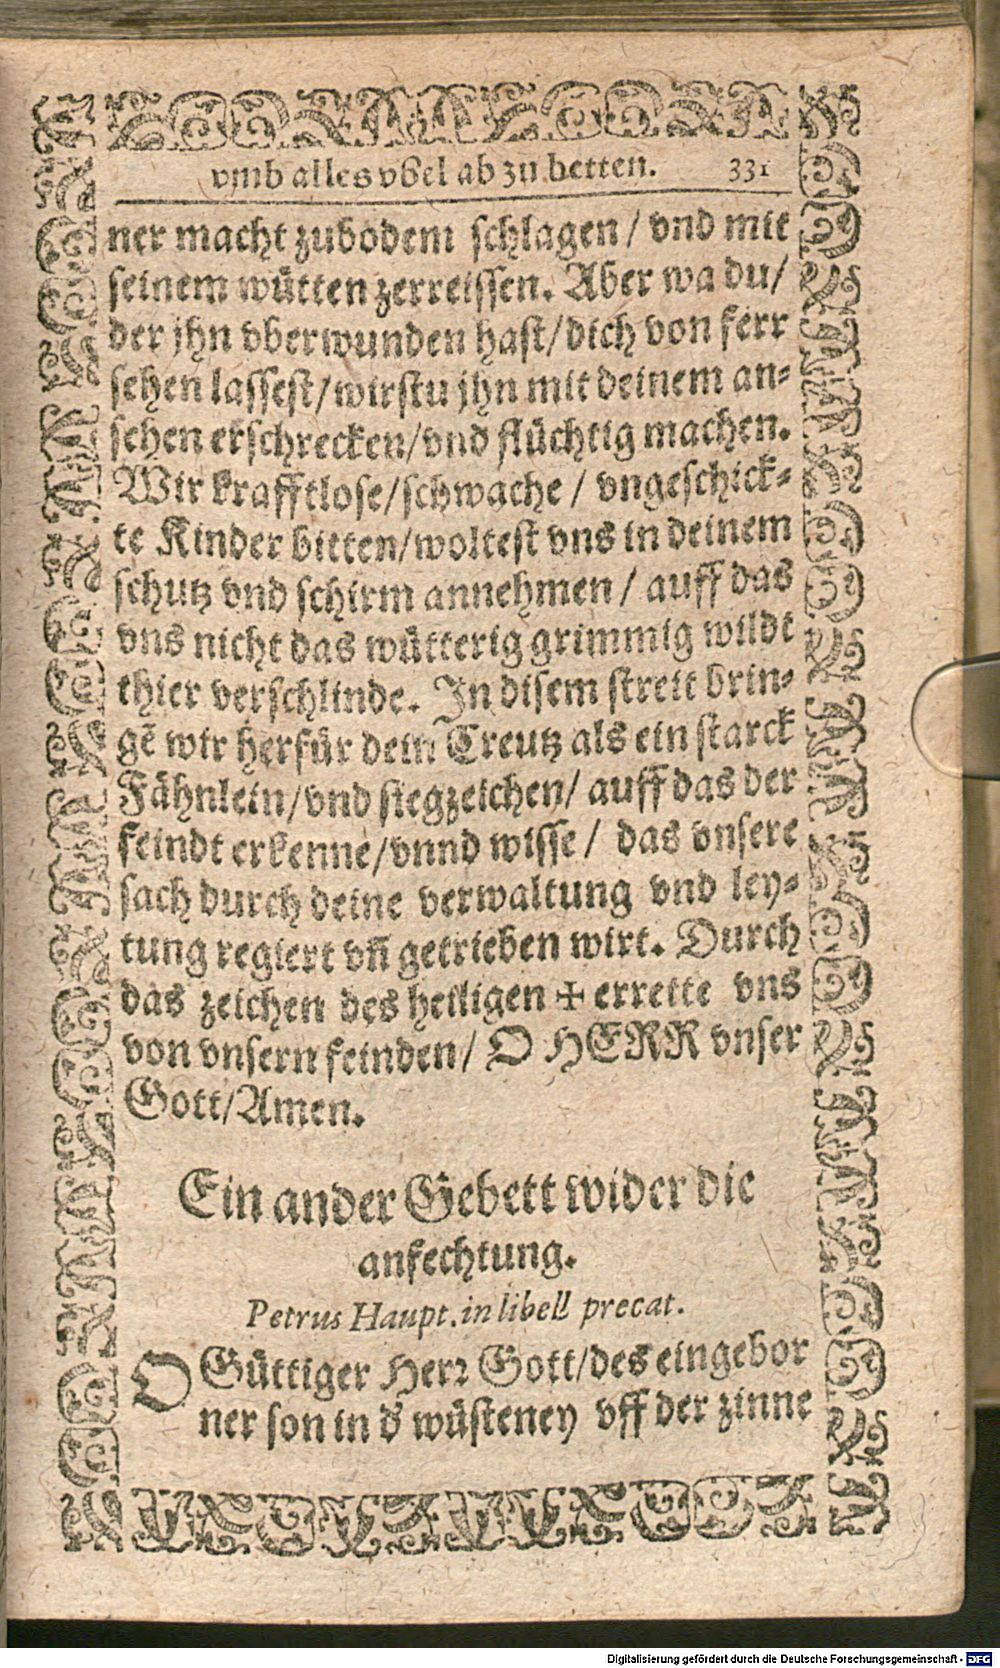 vmb alles vbel ab zu betten. 331
ner macht zubodem schlagen / vnd mit
seinem wütten zerreissen. Aber wa du/
der jhn vberwunden hast/dich von ferr
sehen lassest/wirstu jhn mit deinem an-
sehen erschrecken/vnd flüchtig machen.
Wir krafftlose/schwache / vngeschick-
te Kinder bitten/woltest vns in deinem
schutz vnd schirm annehmen / auff das
vns nicht das wütterig grimmig wildt
thier verschlinde. In disem streit brin-
gē wir herfür dein Creutz als ein starck
Fähnlein/vnd siegzeichen/ auff das der
feindt erkenne/vnnd wisse / das vnsere
sach durch deine verwaltung vnd ley-
tung regiert vñ getrieben wirt. Durch
das zeichen des heiligen ✠ errette vns
von vnsern feinden/ O HERR vnser
Gott/Amen.
Ein ander Gebett wider die
anfechtung.
Petrus Haupt. in libell precat.
O Güttiger Herr Gott/des eingebor
ner son in d' wüsteney vff der zinne
Digitalisierung gefördert durch die Deutsche Forschungsgemeinschaft - DFG